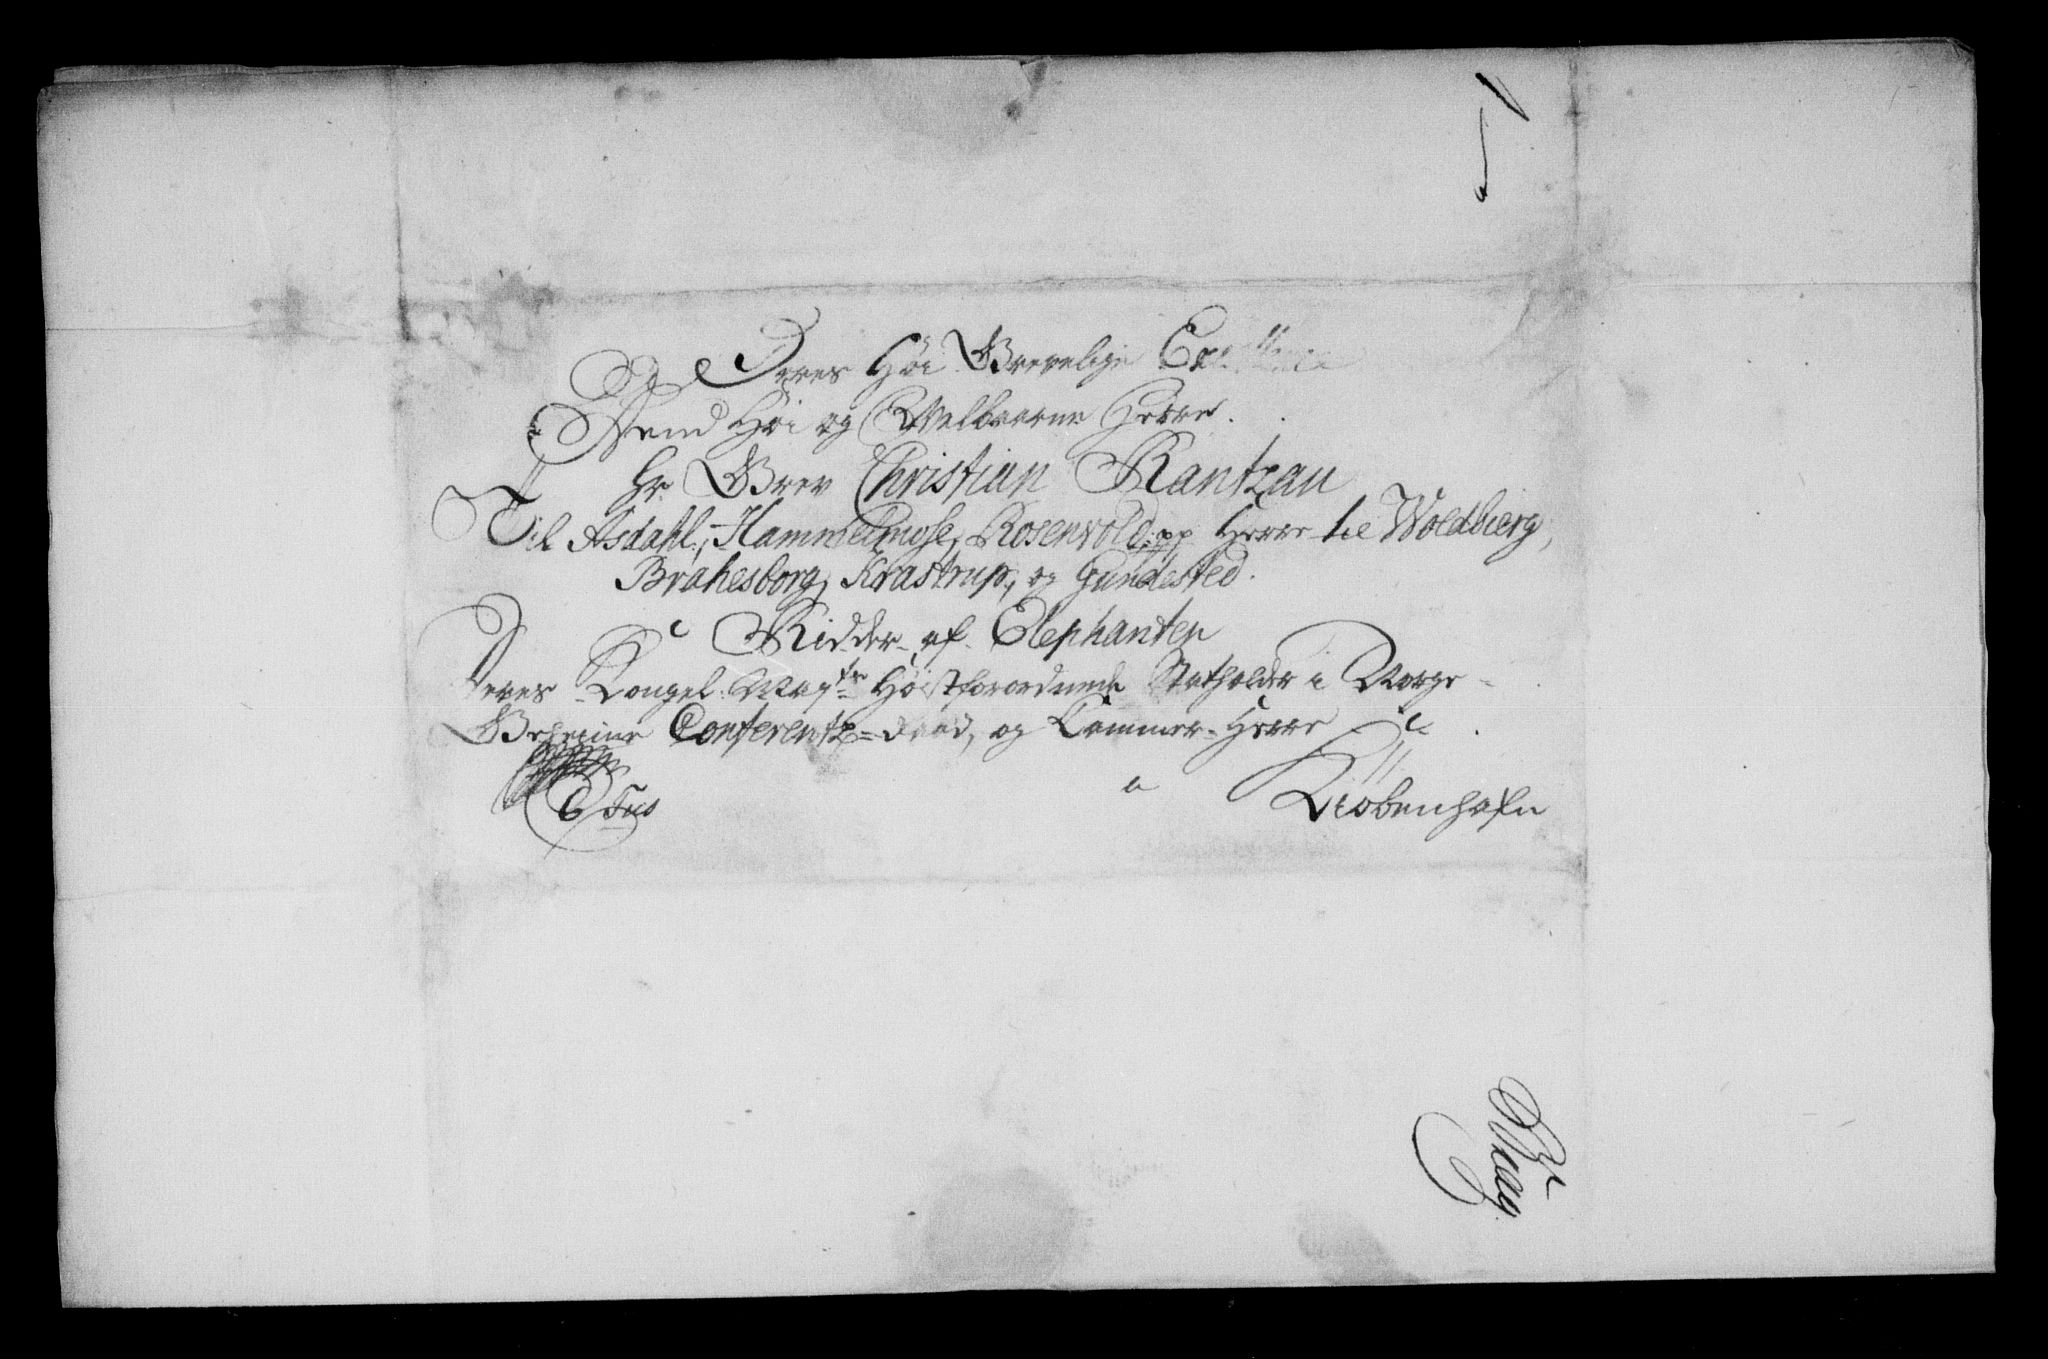 Deres Høi Grevelige Excellence
Høi og Welbaarne Herre.
Hr. Grev Christian Rantzau
Til Asdahl, Hammelmose, Rosenvold pp Herre til Woldbierg,
Brahesborg, Krastrup, og Gundested.
Ridder af Elephanten
Deres Kongel: May:ts Høistforordnede Statholder i Norge
Geheime Conferentz=Raad, og Kammer-Herre
a Kiøbenhafn